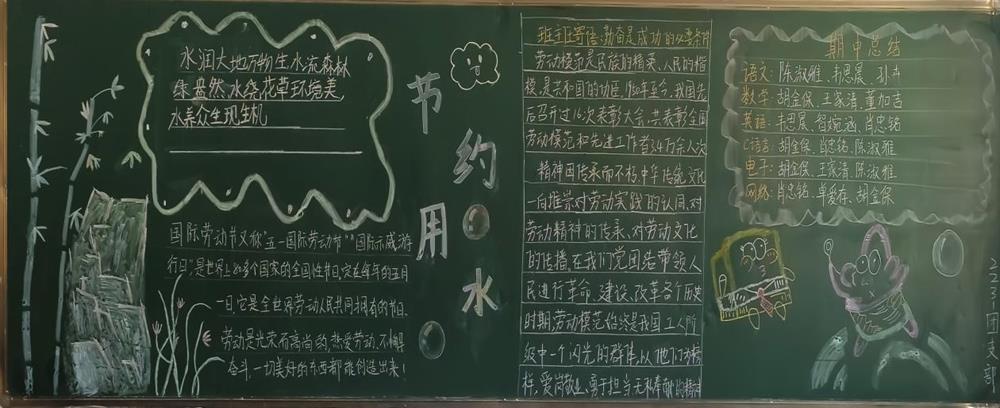 水润大地万物生水流森林
绿盎然,水绕花草环境美,
水养众生现生机
节约用水
国际劳动节又称"五一国际劳动节""国际示威游
行日",是世界上80多个国家的全国性节日,定在每年的五月
一日,它是全世界劳动人民共同拥有的节日、
劳动是光荣而高尚的,热爱劳动、不懈
奋斗,一切美好的东西都能创造出来!
班主任寄语:勤奋是成功的必要条件
劳动模范是民族的精英、人民的楷
模,是共和国的功臣,1950年至今,我国先
后召开过16次表彰大会,共表彰全国
劳动模范和先进工作者3.4万余人次
精神因传承而不朽,中华传统文化
一向推崇对劳动实践的认同、对
劳动精神的传承、对劳动文化
的传播,在我们党团结带领人
民进行革命、建设、改革各个历史
时期,劳动模范始终是我国工人阶
级中一个闪光的群体,从他们
样,爱岗敬业、勇于担当、无私奉献的精神
期中总结
语文:陈淑雅、韦思晨、孙
数学:胡金保、王家清、董加吉
英语:韦思晨、智婉涵、肖忠铭
C语言:胡金保、肖忠铭、陈淑雅
电子:胡金保、王家清、陈淑雅
网络:肖忠铭、卓爱存、胡金保
223团支部